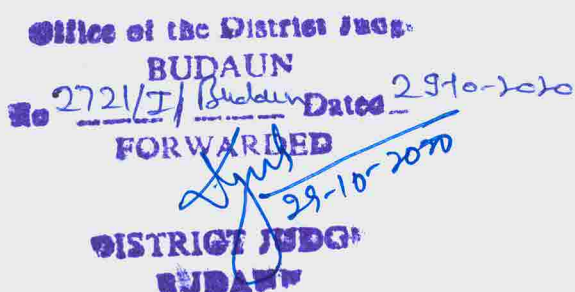 Office of the District Judge
BUDAUN
No 2721/I/Budaun Dated 29-10-2020
FORWARDED
29-10-2020
DISTRICT JUDGE
BUDAUN